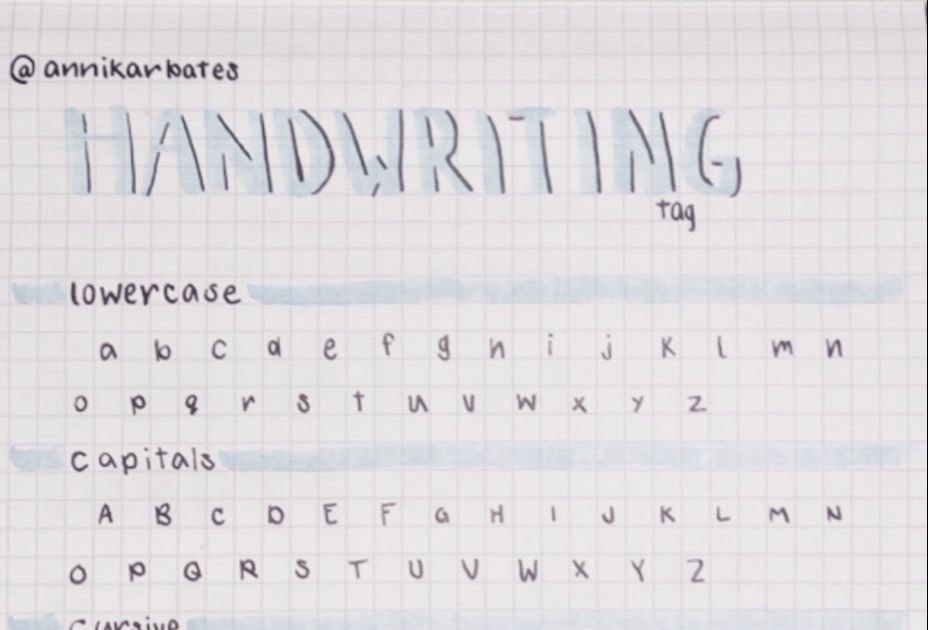 @annikarbates
HANDWRITING
tag
lowercase
a b c d e f g h i j k l m n
o p q r s t u v w x y z
capitals
A B C D E F G H I J K L M N
O P Q R S T U V W X Y Z
cursive